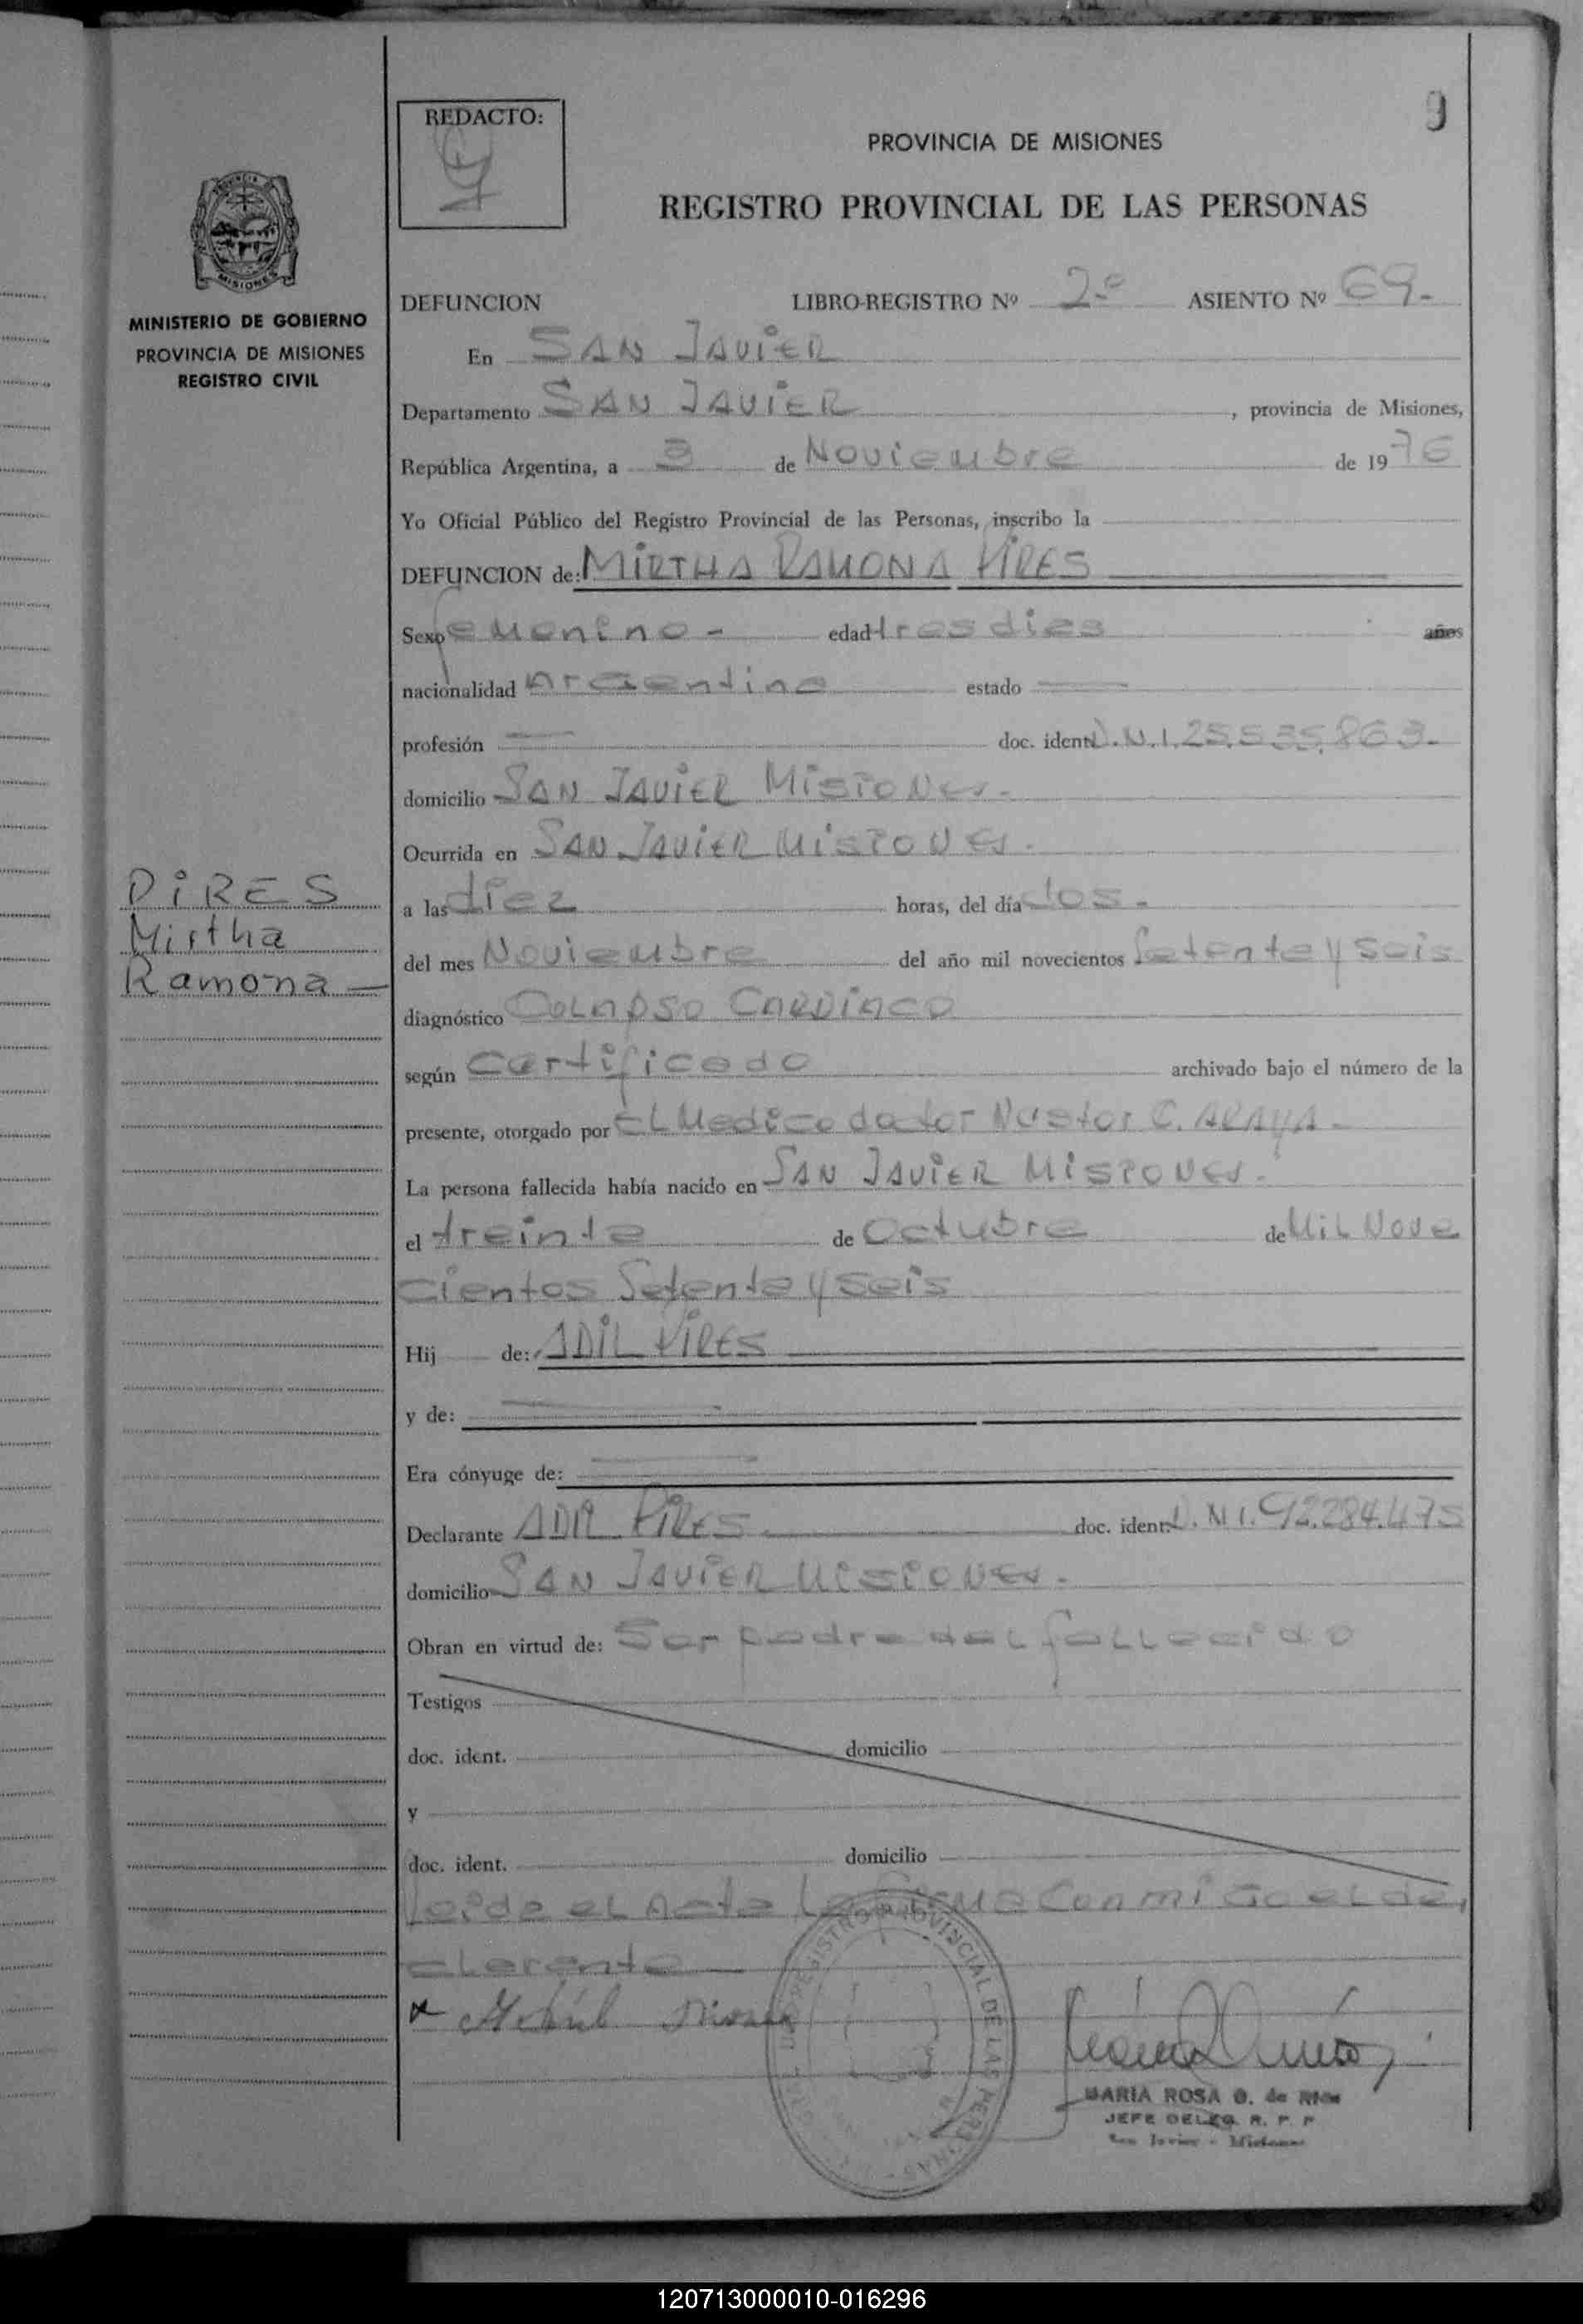 9
REDACTO:
PROVINCIA DE MISIONES
REGISTRO PROVINCIAL DE LAS PERSONAS
MINISTERIO DE GOBIERNO
PROVINCIA DE MISIONES
REGISTRO CIVIL
DEFUNCION LIBRO-REGISTRO Nº 2º ASIENTO Nº 69.-
En SAN JAVIER
Departamento SAN JAVIER, provincia de Misiones,
República Argentina, a 3 de Noviembre de 1976
Yo Oficial Público del Registro Provincial de las Personas, inscribo la
DEFUNCION de: MIRTHA RAMONA PIRES
Sexo femenino - edad tres dias años
nacionalidad Argentina estado
profesión doc. ident. D.N.I. 25.535.863.-
domicilio SAN JAVIER MISIONES.-
Ocurrida en SAN JAVIER MISIONES.
PIRES
Mirtha
Ramona —
a las diez horas, del día dos.-
del mes Noviembre del año mil novecientos Setenta y seis
diagnóstico COLAPSO CARDIACO
según certificado archivado bajo el número de la
presente, otorgado por EL Medico doctor Nestor C. ARAYA.-
La persona fallecida había nacido en SAN JAVIER MISIONES.-
el treinta de Octubre de MIL Nove
cientos Setenta y seis
Hij de: ADIL PIRES
y de:
Era cónyuge de:
Declarante ADIL PIRES doc. ident. D.N.I. 92.284.475
domicilio SAN JAVIER MISIONES.-
Obran en virtud de: Ser padre del fallecido
Testigos
doc. ident. domicilio
y
doc. ident. domicilio
Leida el Acta La firma conmigo el de,
clarante —
REGISTRO PROVINCIAL DE LAS PERSONAS
MARIA ROSA G. de
JEFE DELEG. R. P. P
San Javier - Misiones
120713000010-016296